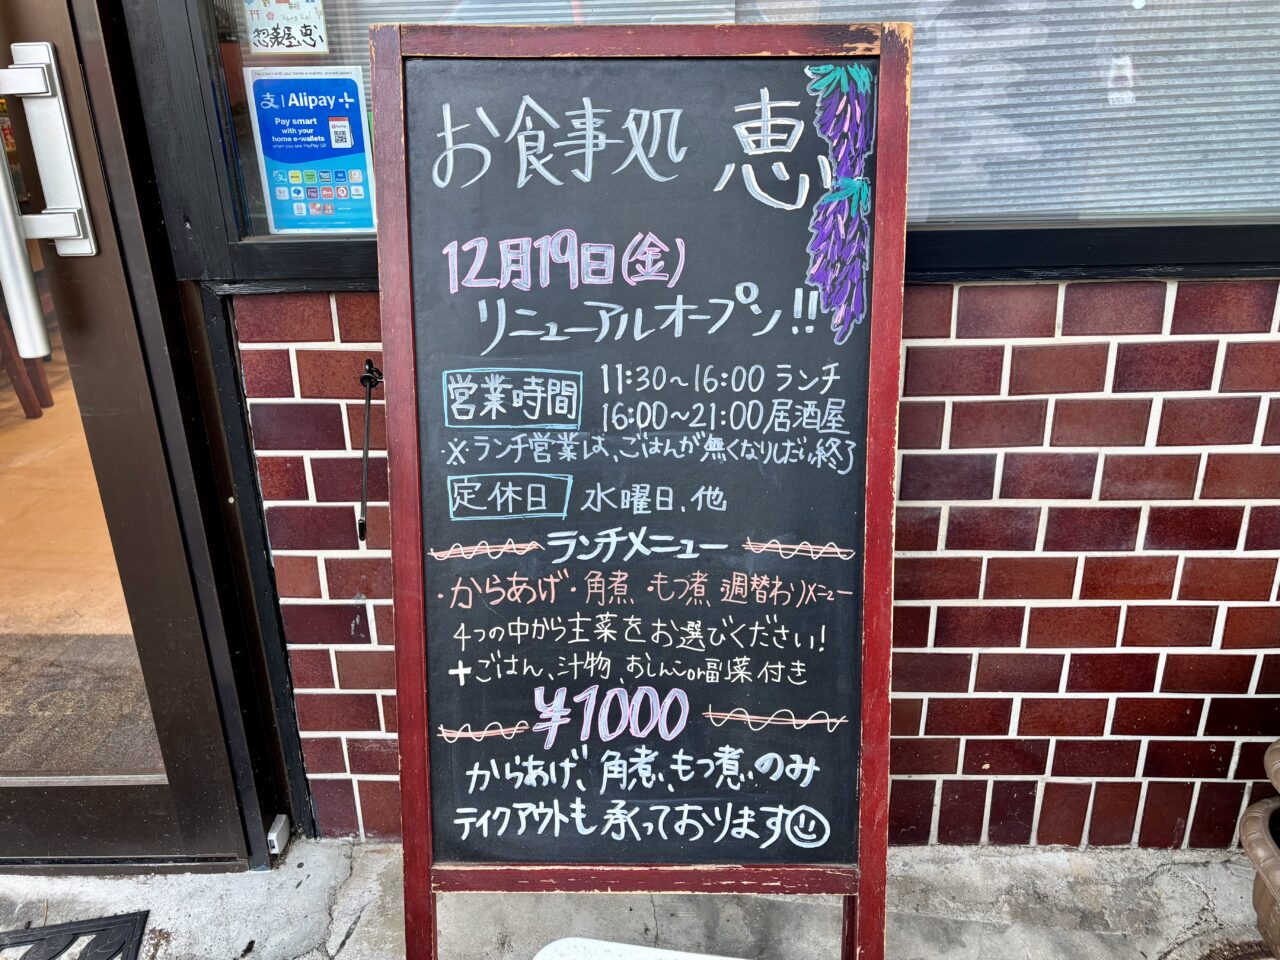 惣菜屋 恵
Pay smart with your home e-wallets around Japan!
支 | Alipay+
Pay smart
with your
home e-wallets
when you see PayPay QR
お食事処 恵
12月19日(金)
リニューアルオープン!!
営業時間 11:30~16:00 ランチ
16:00~21:00 居酒屋
※ランチ営業は、ごはんが無くなりしだい終了
定休日 水曜日、他
ランチメニュー
・からあげ・角煮・もつ煮 週替わりメニュー
4つの中から主菜をお選びください!
+ごはん、汁物、おしんこor副菜付き
¥1000
からあげ、角煮、もつ煮、のみ
テイクアウトも承っております